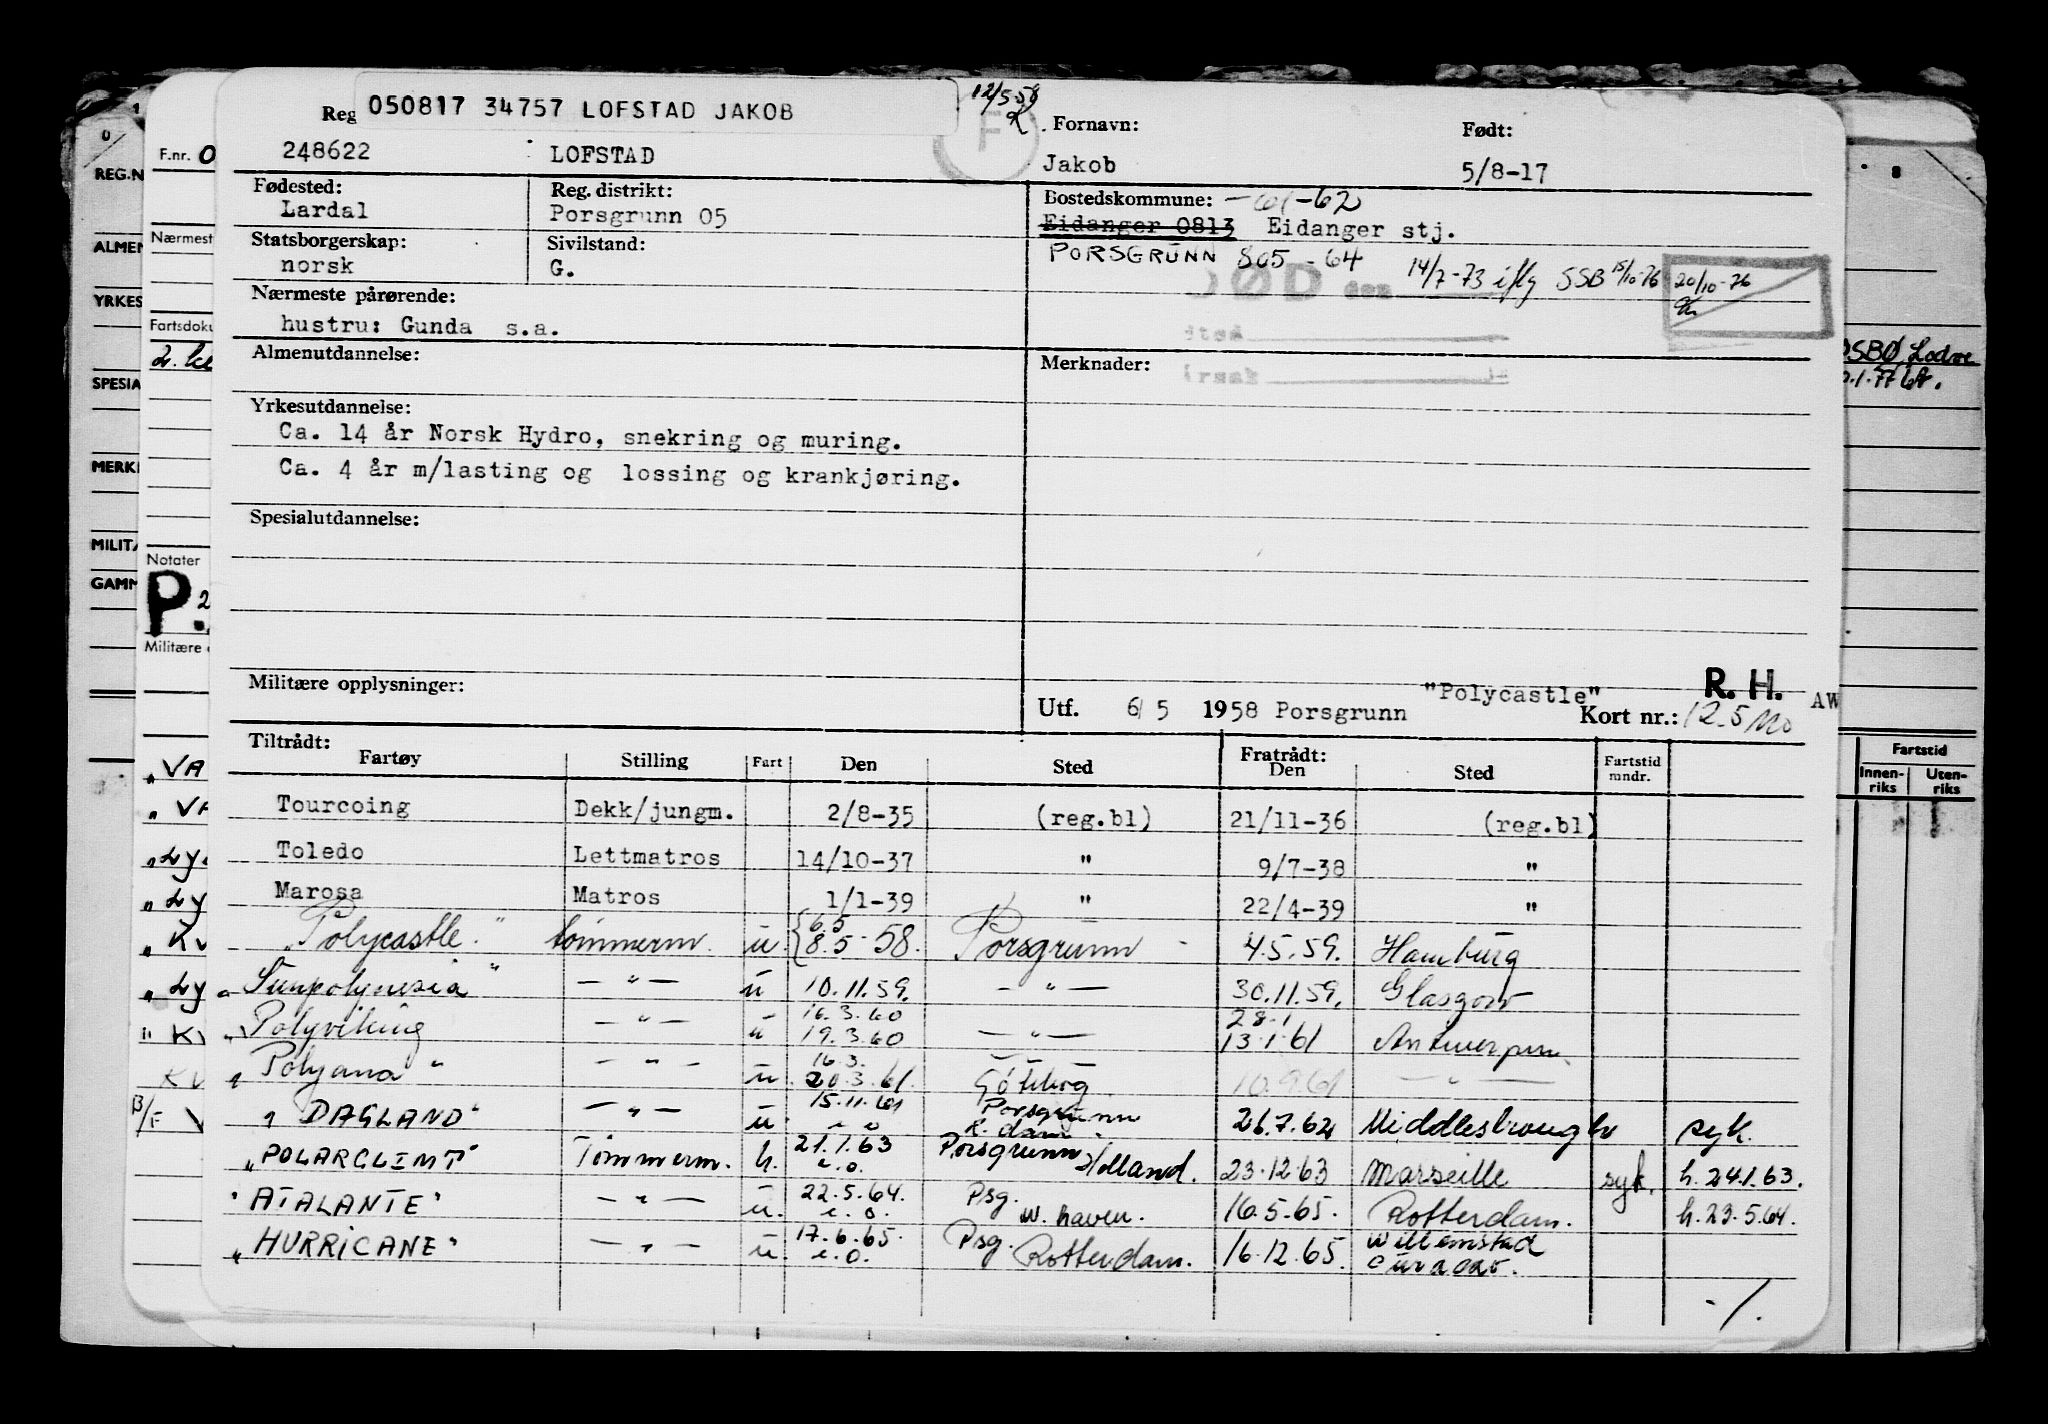 050817 34757 LOFSTAD JAKOB
12/5 58
Reg
F
Fornavn: Født:
248622 LOFSTAD Jakob 5/8-17
Fødested: Reg. distrikt: Bostedskommune: -61-62
Lardal Porsgrunn 05 Eidanger 0813 Eidanger stj.
Statsborgerskap: Sivilstand: PORSGRUNN 805 - 64
norsk G. DØD den 14/7-73 iflg SSB 15/10-76 20/10-76
Nærmeste pårørende:
hustru: Gunda s.a.
Almenutdannelse: Merknader:
Yrkesutdannelse:
Ca. 14 år Norsk Hydro, snekring og muring.
Ca. 4 år m/lasting og lossing og krankjøring.
Spesialutdannelse:
Militære opplysninger:
R. H. AW
Utf. 6/5 1958 Porsgrunn "Polycastle" Kort nr.: 12.5
Tiltrådt: Fratrådt:
Fartøy Stilling Fart Den Sted Den Sted Fartstid mndr.
Tourcoing Dekk/jungm. 2/8-35 (reg.bl) 21/11-36 (reg.bl)
Toledo Lettmatros 14/10-37 " 9/7-38 "
Marosa Matros 1/1-39 " 22/4-39 "
"Polycastle" tømmerm. u. {6.5 8.5-58. Porsgrunn - 4.5.59. Hamburg
"Sunpolynesia" — " — u 10.11.59. — " — 30.11.59. Glasgow
16.3.60 28.1
"Polyviking — " — u 19.3.60 — " — 13.1.61 Antwerpen
16.3.
"Polyana" — " — u. 20.3.61. Göteborg 10.9.61 — " —
15.11.61 Porsgrunn
"DAGLAND" — " — u. i.o R.dam. 26.7.62 Middlesbrough syk.
"POLARGLIMT" Tømmerm. h. 21.1.63 i.o. Porsgrunn Holland. 23.12.63 Marseille syk. h.24.1.63.
"ATALANTE" — " — u. 22.5.64. i.o. Psg. W. haven. 16.5.65. Rotterdam. h.23.5.64.
"HURRICANE" — " — u. 17.6.65. i.o. Psg. Rotterdam. 16.12.65. Willemstad Curacao.
-/.
F.nr. 0
REG.N
Nærmest
ALMEN
YRKES
Fartsdoku
SPESIA
MERK
MILITÆ
Notater
GAMM
P.
Militære
"VA
"VA
"Ly
"Ly
"KV
"Ly
"KV
KV
B/F V
8
Fartstid
Innenriks Utenriks